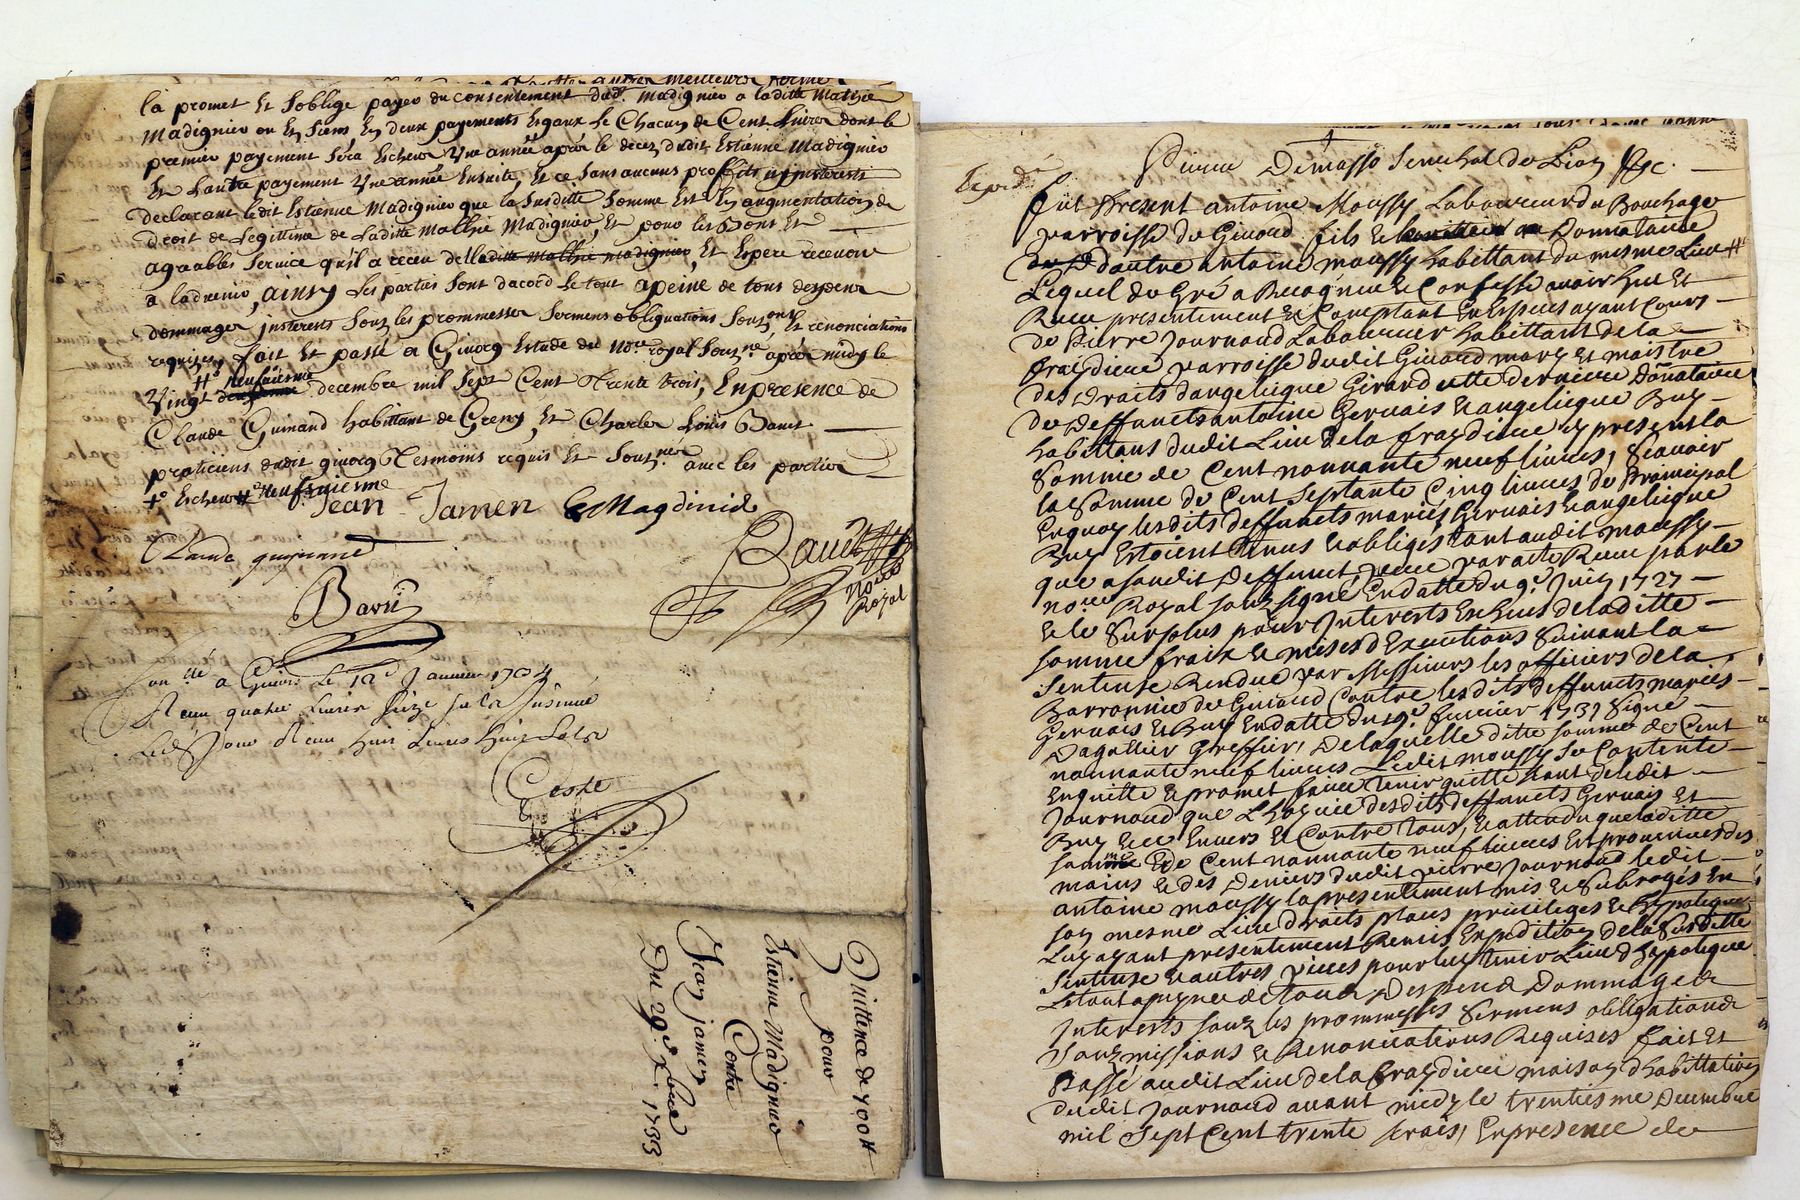 la promet Et soblige payer du consentement dud. Madignier a laditte Mathie
Madignier ou Es siens En deux payements Esgaux de Chacun de Cent livres dont le
premier payement sera Escheu Une année après le décez dudit Estienne Madignier
Et l'autre payement Une année Ensuite, et ce sans aucuns proffits ny jnterests
declarant ledit Estienne Madignier que la susditte somme Est En augmentation de
droit de Legittime de laditte Mathie Madignier, Et pour les bons Et
agreables service qu'il a receu delladitte Mathie Madignier, Et Espere recevoir
a ladvenir, ainsy Les parties sont dacord Le tout apeine de tous despens
dommages jnterests sous les prommesses sermens obliguations souz.ons Et renonciations
requises, fait Et passé a Givors Estude du No.re royal souz.né après midy le
+t neufuieme
Vingt decembre mil sept Cent Trente trois, En presence de
Claude Guinand habittant de Grezy, Et Charles Louis Bavet
praticiens dudit givors Tesmoins requis Et Souz.nés avec les parties
+ Escheu + neufuiesme
Jean Jamen E Magdinié
Claude guinand
Bavet
Noire
Royal
Bavet
Con.llé a Givors Le 12e Janvier 1734
Receu quatre Livres seize sols
Led. Jour Receu huit Livres huit sols
Coste
Quittence de 400 #
pour
Estienne Madignier
Contre
Jean jamen
Du 29e Xbre 1733
Pierre Démasso Senechal de Lion &c.
Exped.é
fut Present antoine Moussy Laboureur du Bouchage
parroisse de Givord fils & Donnataire
dautre antoine moussy habittant du mesme Lieu #
Lequel de Gré a Recognu & Confessé avoir heu Et
Receu presentement & Comptant En Especes ayant Cours
de Pierre Journoud Laboureur habittant de la
fraydiere parroisse dudit Givord mary Et maistre
des Droits dangelique Girard cette derniere Donataire
de deffuncts antoine Gervais & angelique Buy
habittans dudit Lieu de la fraydiere y present la
Somme de Cent nonnante neuf livres, Scavoir
la Somme de Cent Septante Cinq livres de Principal
Enquoy lesdits deffuncts mariés Gervais & angelique
Buy Estoient tenus & obligés tant audit moussy
que a sondit deffunct pere par acte Receu par le
no.re Royal souz signé En datte du 9e Juin 1727
& le Surplus pour Interests Echeus de laditte
somme fraix & mises d'Executions Suivant la
sentense Rendue par Messieurs les officiers de la
Barronnie de Givord Contre lesdits deffuncts mariés
Gervais & Buy En datte du 19e fevrier 1731 signé
Dagallier Greffier, De laquelle ditte somme de Cent
nonnante neuf livres Ledit moussy Se Contente
Enquitte & promet faire tenir quitte tant deledit
Journoud que L'hoyrie desdits deffuncts Gervais Et
Buy & ce Envers & Contre tous, & attendu que laditte
somme de Cent nonnante neuf livres Est provenues des
mains & des Deniers dudit pierre Journoud ledit
antoine moussy la presentement mis & Subrogés En
son mesme Lieu droits places privileges & hypoteques
Luy ayant presentement Remis Expedition de la Susditte
Sentense & autres pieces pour luy tenir Lieu d'hypoteque
Le tout apeyne de tous Despens Dommages
Interests souz les prommesses Sermens obligations
Souzmissions & Renonciations Requises fait Et
Passé audit Lieu de la fraydiere maison d'habittation
dudit Journoud avant midy le trentiesme Decembre
mil Sept Cent trente trois, En presence de